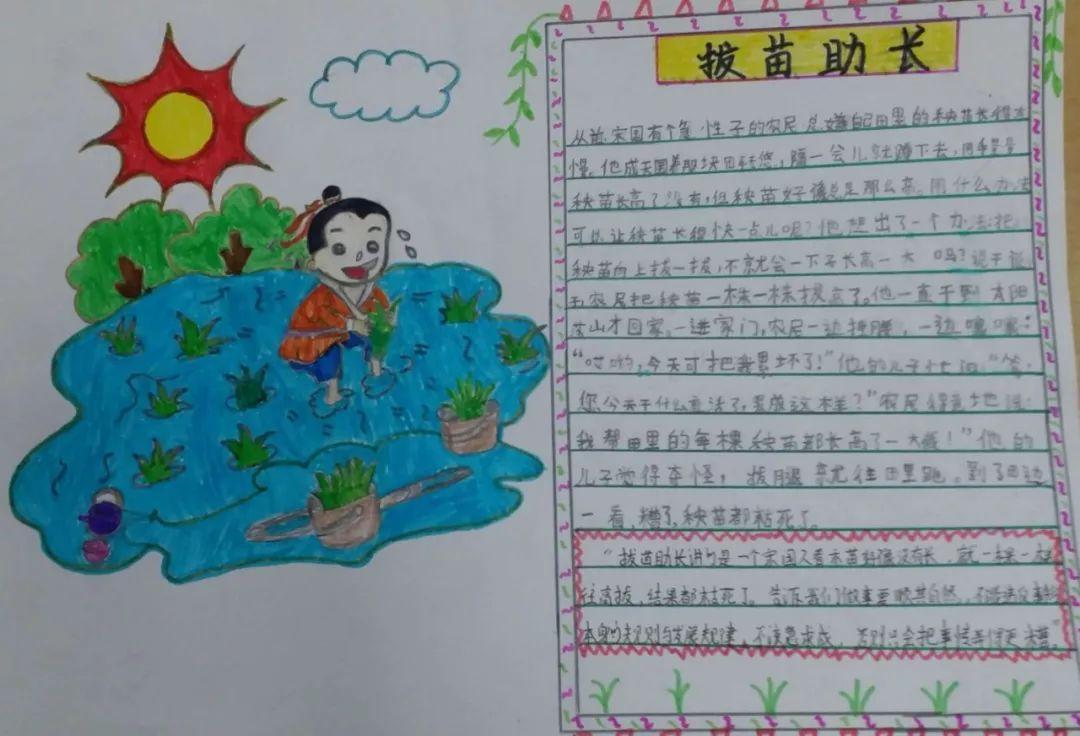 拔苗助长
从前宋国有个急性子的农民总嫌自己田里的秧苗长得
慢,他成天围着取块田转悠,隔一会儿就蹲下去,用手量量
秧苗长高了没有,但秧苗好像总是那么高。用什么办法
可以让秧苗长得快一点儿呢?他想出了一个办法:把
秧苗向上拔一拔,不就会一下子长高一大 吗?说干
农民把秧苗一株一株拔高了。他一直干到太阳
山才回家。一进家门,农民一边捶腰,一边嚷嚷:
“哎哟,今天可把我累坏了!”他的儿子忙问“爸
您今天干什么重活了,累成这样?”农民得意地说:
我帮田里的每棵秧苗都长高了一大截!”他的
儿子觉得奇怪,拔腿就往田里跑。到了田边
一看,糟了,秧苗都枯死了。
“拔苗助长讲的是一个宋国人看禾苗好像没有长,就一棵一棵
往高拔,结果都枯死了。告诉我们做事要顺其自然,不
本身的规则与发展规律,不该急求成,否则只会把事情弄得更糟。”